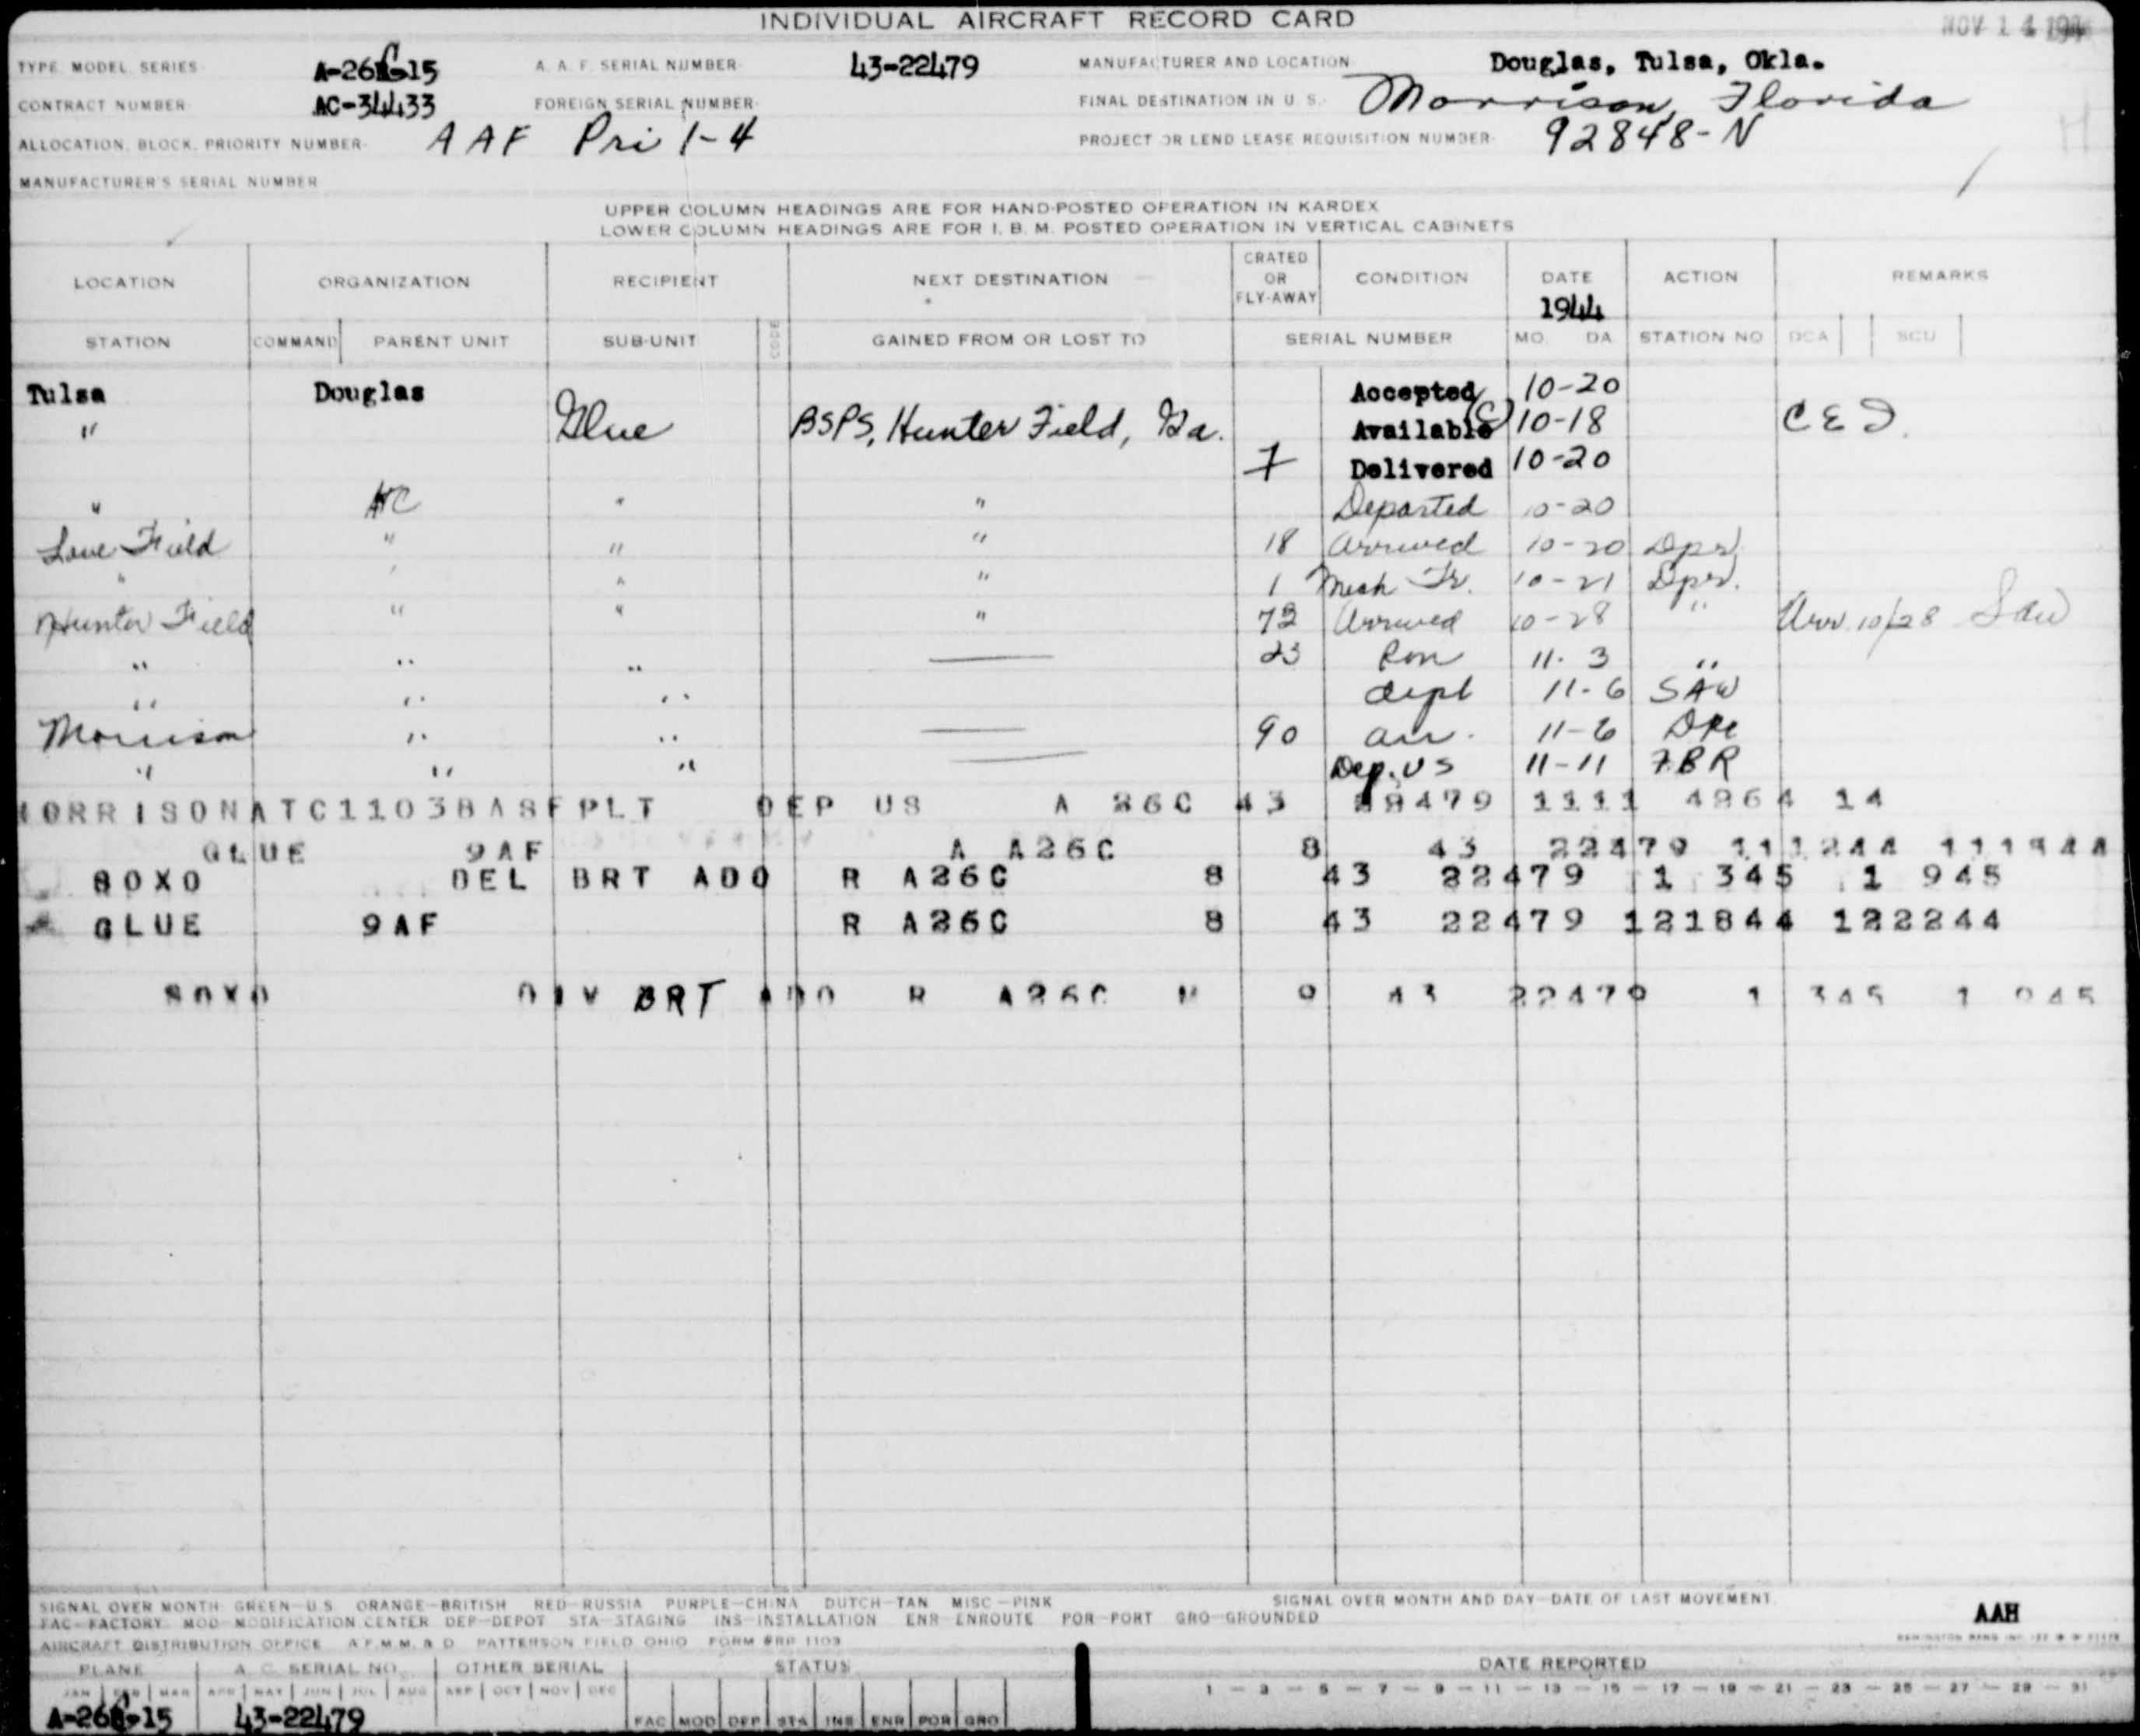 INDIVIDUAL AIRCRAFT RECORD CARD
NOV 14 194
TYPE, MODEL, SERIES A-26C-15 A. A. F. SERIAL NUMBER 43-22479 MANUFACTURER AND LOCATION Douglas, Tulsa, Okla.
CONTRACT NUMBER AC-34433 FOREIGN SERIAL NUMBER FINAL DESTINATION IN U. S. Morrison, Florida
ALLOCATION, BLOCK, PRIORITY NUMBER AAF Pri 1-4 PROJECT OR LEND LEASE REQUISITION NUMBER 92848-N
H
MANUFACTURER'S SERIAL NUMBER
UPPER COLUMN HEADINGS ARE FOR HAND-POSTED OPERATION IN KARDEX
LOWER COLUMN HEADINGS ARE FOR I. B. M. POSTED OPERATION IN VERTICAL CABINETS
LOCATION ORGANIZATION RECIPIENT NEXT DESTINATION CRATED OR FLY-AWAY CONDITION DATE ACTION REMARKS
1944
STATION COMMAND PARENT UNIT SUB-UNIT CODE GAINED FROM OR LOST TO SERIAL NUMBER MO. DA. STATION NO DCA SCU
Tulsa Douglas Accepted 10-20
" Glue BSPS, Hunter Field, Ga. Available (C) 10-18 C E I.
7 Delivered 10-20
" ATC " " Departed 10-20
Love Field " " " 18 Arrived 10-20 Dpr.
" " " " 1 Mech Tr. 10-21 Dpr.
Hunter Field " " " 72 Arrived 10-28 " Arr 10/28 Saw
" " " — 23 Ron 11-3 "
" " " dept 11-6 SAW
Morrison " " — 90 arr. 11-6 DPR
" " " — Dep. US 11-11 FBR
MORRISONATC11038ASFPLT DEP US A 26C 43 22479 1111 4264 14
GLUE 9AF A A26C 8 43 22479 111244 111944
SOXO DEL BRT ADO R A26C 8 43 22479 1 345 1 945
GLUE 9AF R A26C 8 43 22479 121844 122244
SOXO DIV BRT ADO R A26C M 9 43 22479 1 345 1 945
SIGNAL OVER MONTH GREEN—U.S. ORANGE—BRITISH RED—RUSSIA PURPLE—CHINA DUTCH—TAN MISC—PINK SIGNAL OVER MONTH AND DAY—DATE OF LAST MOVEMENT.
FAC—FACTORY MOD—MODIFICATION CENTER DEP—DEPOT STA—STAGING INS—INSTALLATION ENR—ENROUTE POR—PORT GRO—GROUNDED
AAH
AIRCRAFT DISTRIBUTION OFFICE A.F.M.M. & D. PATTERSON FIELD OHIO FORM #RR 1103
PLANE A. C. SERIAL NO. OTHER SERIAL STATUS DATE REPORTED
JAN FEB MAR APR MAY JUN JUL AUG SEP OCT NOV DEC 1 — 3 — 5 — 7 — 9 — 11 — 13 — 15 — 17 — 19 — 21 — 23 — 25 — 27 — 29 — 31
A-26C-15 43-22479 FAC MOD DEP STA INS ENR POR GRO